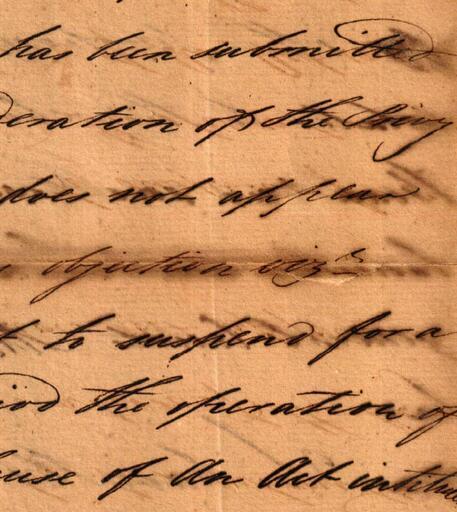 has been submitted
eration of the Privy
does not appear
objection vizt
t to suspend for a
iod the operation of
ause of An Act intitu